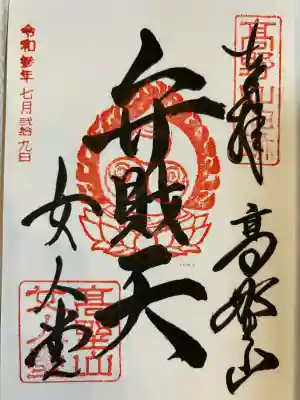 奉拝
高野山
弁財天
女人堂
令和参年 七月弐拾九日
高野山
女人堂